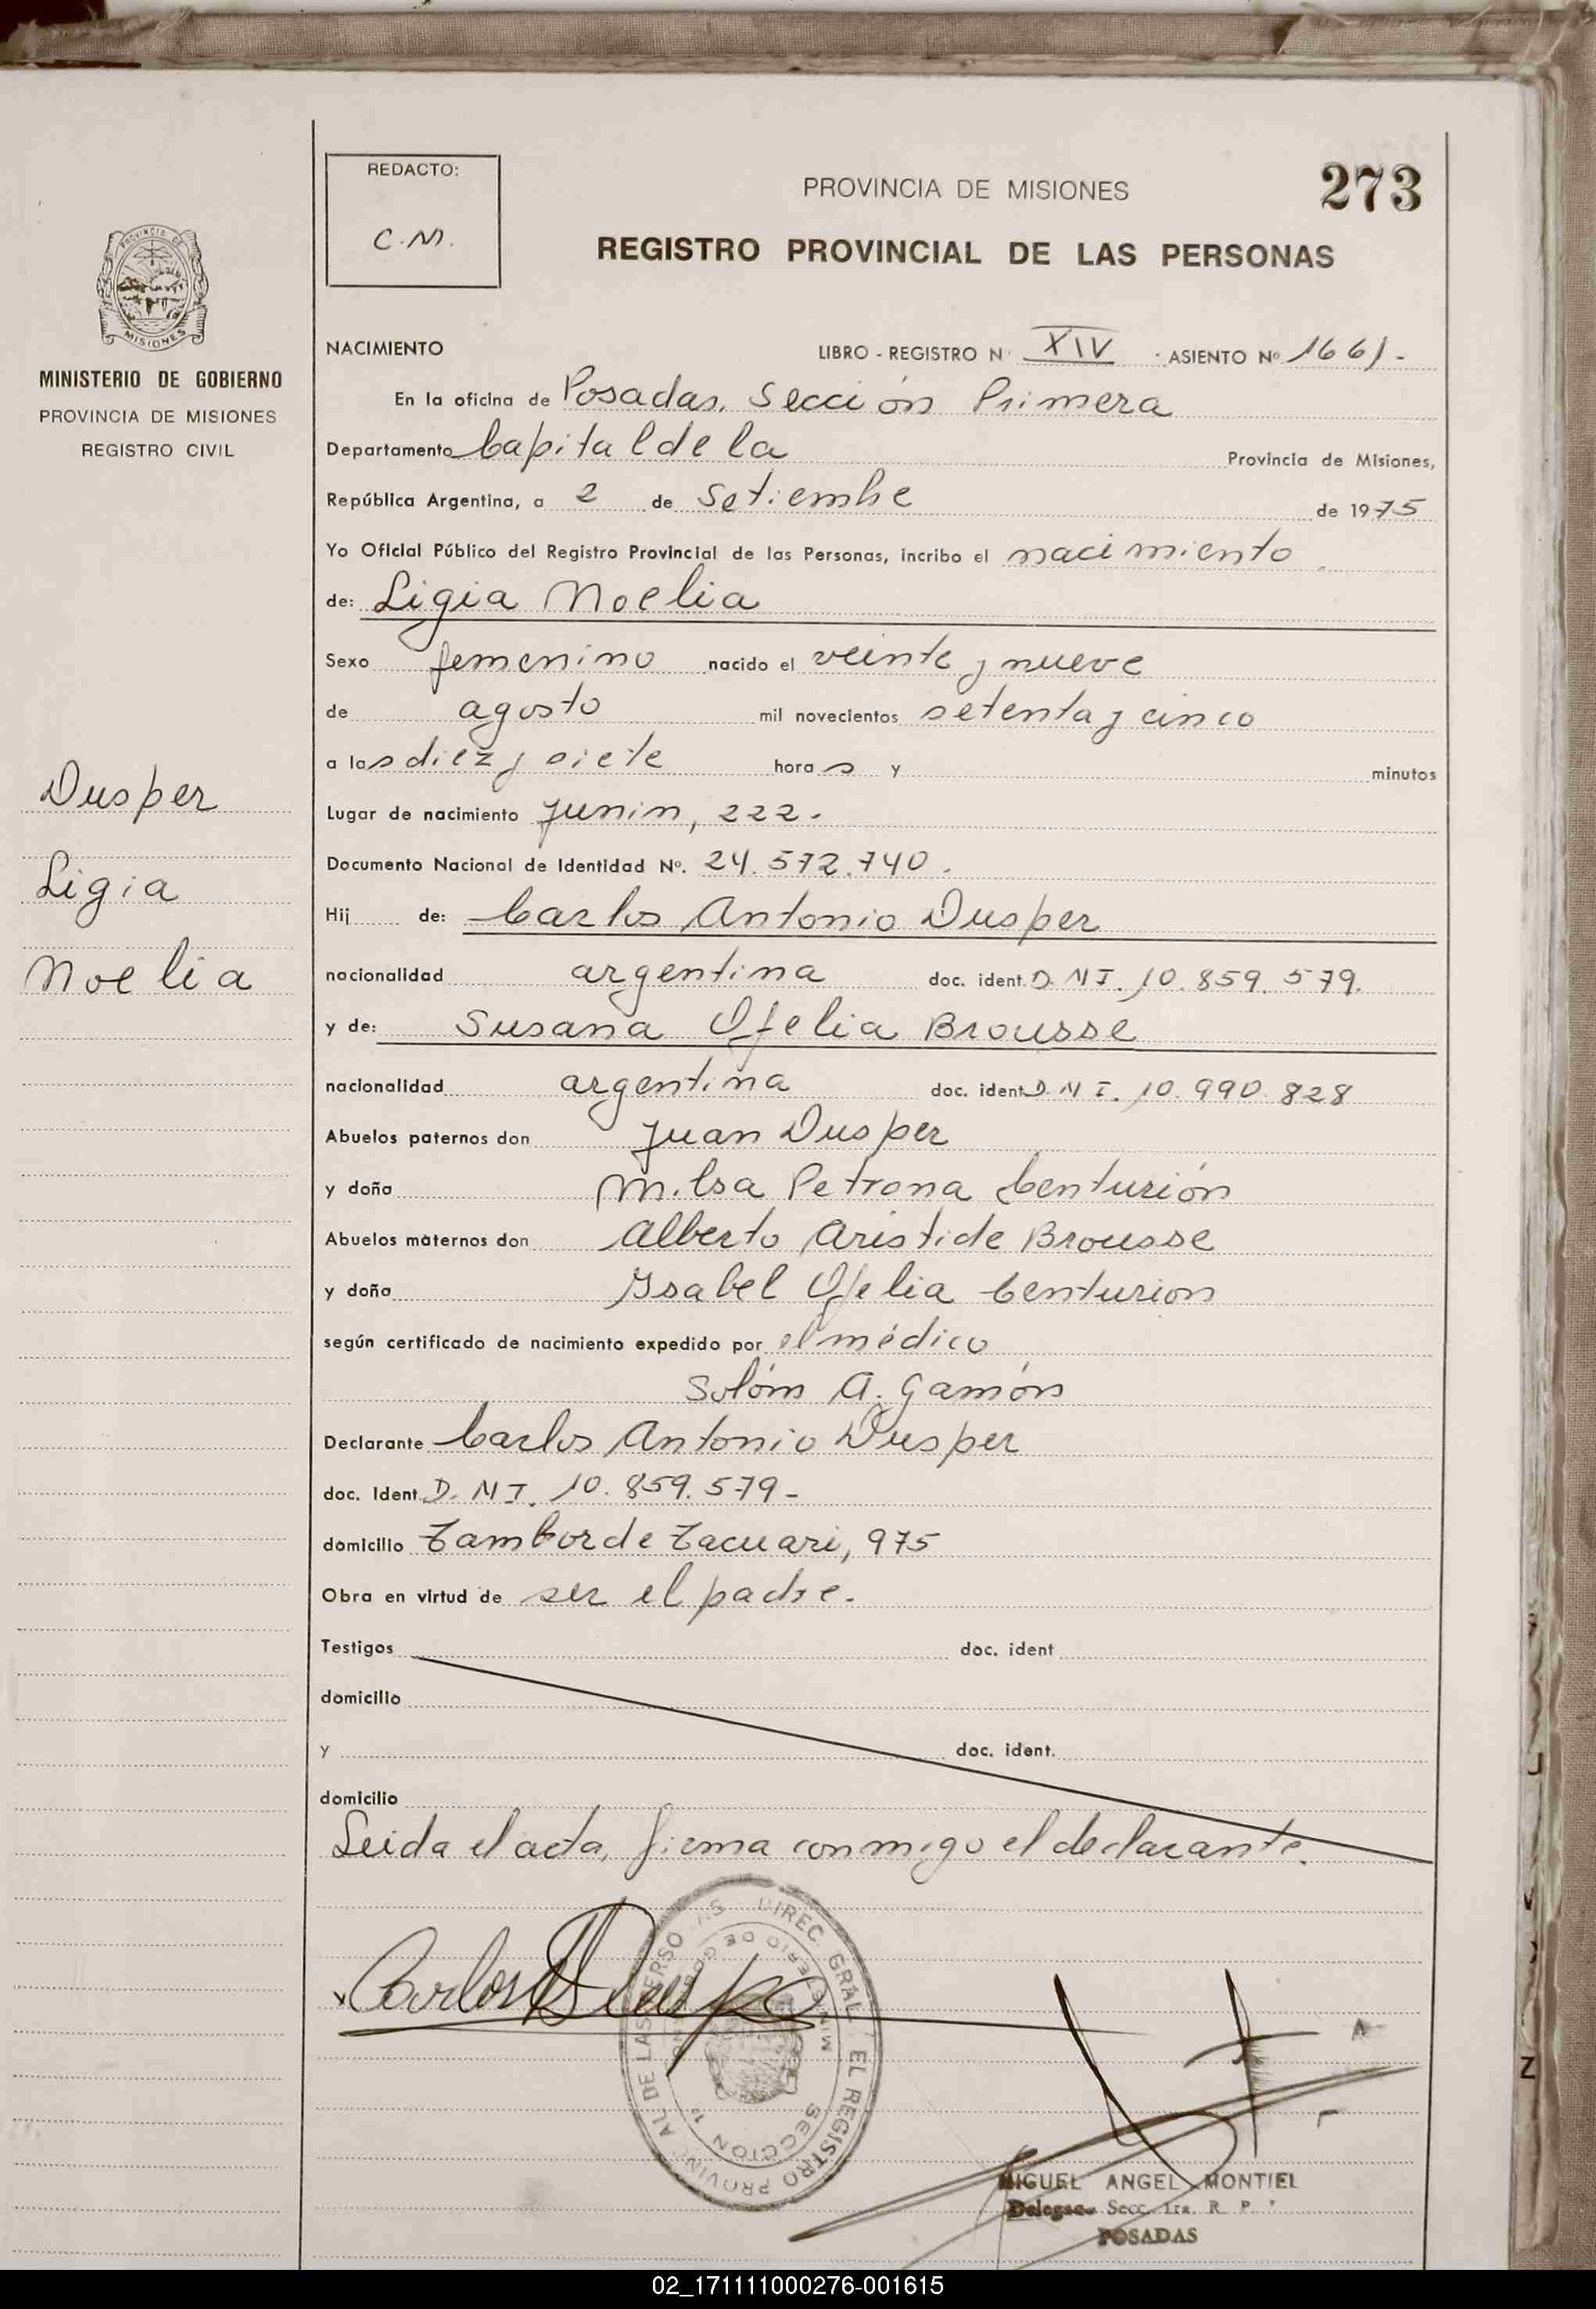 REDACTO:
C.M.
PROVINCIA DE MISIONES
273
REGISTRO PROVINCIAL DE LAS PERSONAS
PROVINCIA DE
MISIONES
MINISTERIO DE GOBIERNO
PROVINCIA DE MISIONES
REGISTRO CIVIL
Dusper
Ligia
Noelia
NACIMIENTO LIBRO - REGISTRO N° XIV ASIENTO Nº 1661.-
En la oficina de Posadas, Sección Primera
Departamento Capital de la Provincia de Misiones,
República Argentina, a 2 de setiembre de 1975
Yo Oficial Público del Registro Provincial de las Personas, incribo el nacimiento
de: Ligia Noelia
Sexo femenino nacido el veinte y nueve
de agosto mil novecientos setenta y cinco
a las diez y siete horas y minutos
Lugar de nacimiento Junin, 222.
Documento Nacional de Identidad Nº. 24.572.740.
Hij de: Carlos Antonio Dusper
nacionalidad argentina doc. ident. D.N.I. 10.859.579.
y de: Susana Ofelia Brousse
nacionalidad argentina doc. ident. D.N.I. 10.990.828
Abuelos paternos don Juan Dusper
y doña Petrona Centurión
Abuelos maternos don Alberto Aristide Brousse
y doña Ysabel Ofelia Centurion
según certificado de nacimiento expedido por el médico
Solón A. Gamón
Declarante Carlos Antonio Dusper
doc. Ident. D.N.I. 10.859.579-
domicilio Tambor de Tacuari, 975
Obra en virtud de ser el padre.
Testigos doc. ident
domicilio
y doc. ident.
domicilio
Leida el acta, firma conmigo el declarante.
Carlos A Dusper
DIREC. GRAL. EL REGISTRO PROVINC AL DE LAS PERSO AS
MINISTERIO DE GOB
SECCION 1ª
MIGUEL ANGEL MONTIEL
Secc. 1ra. R. P.
POSADAS
02_171111000276-001615